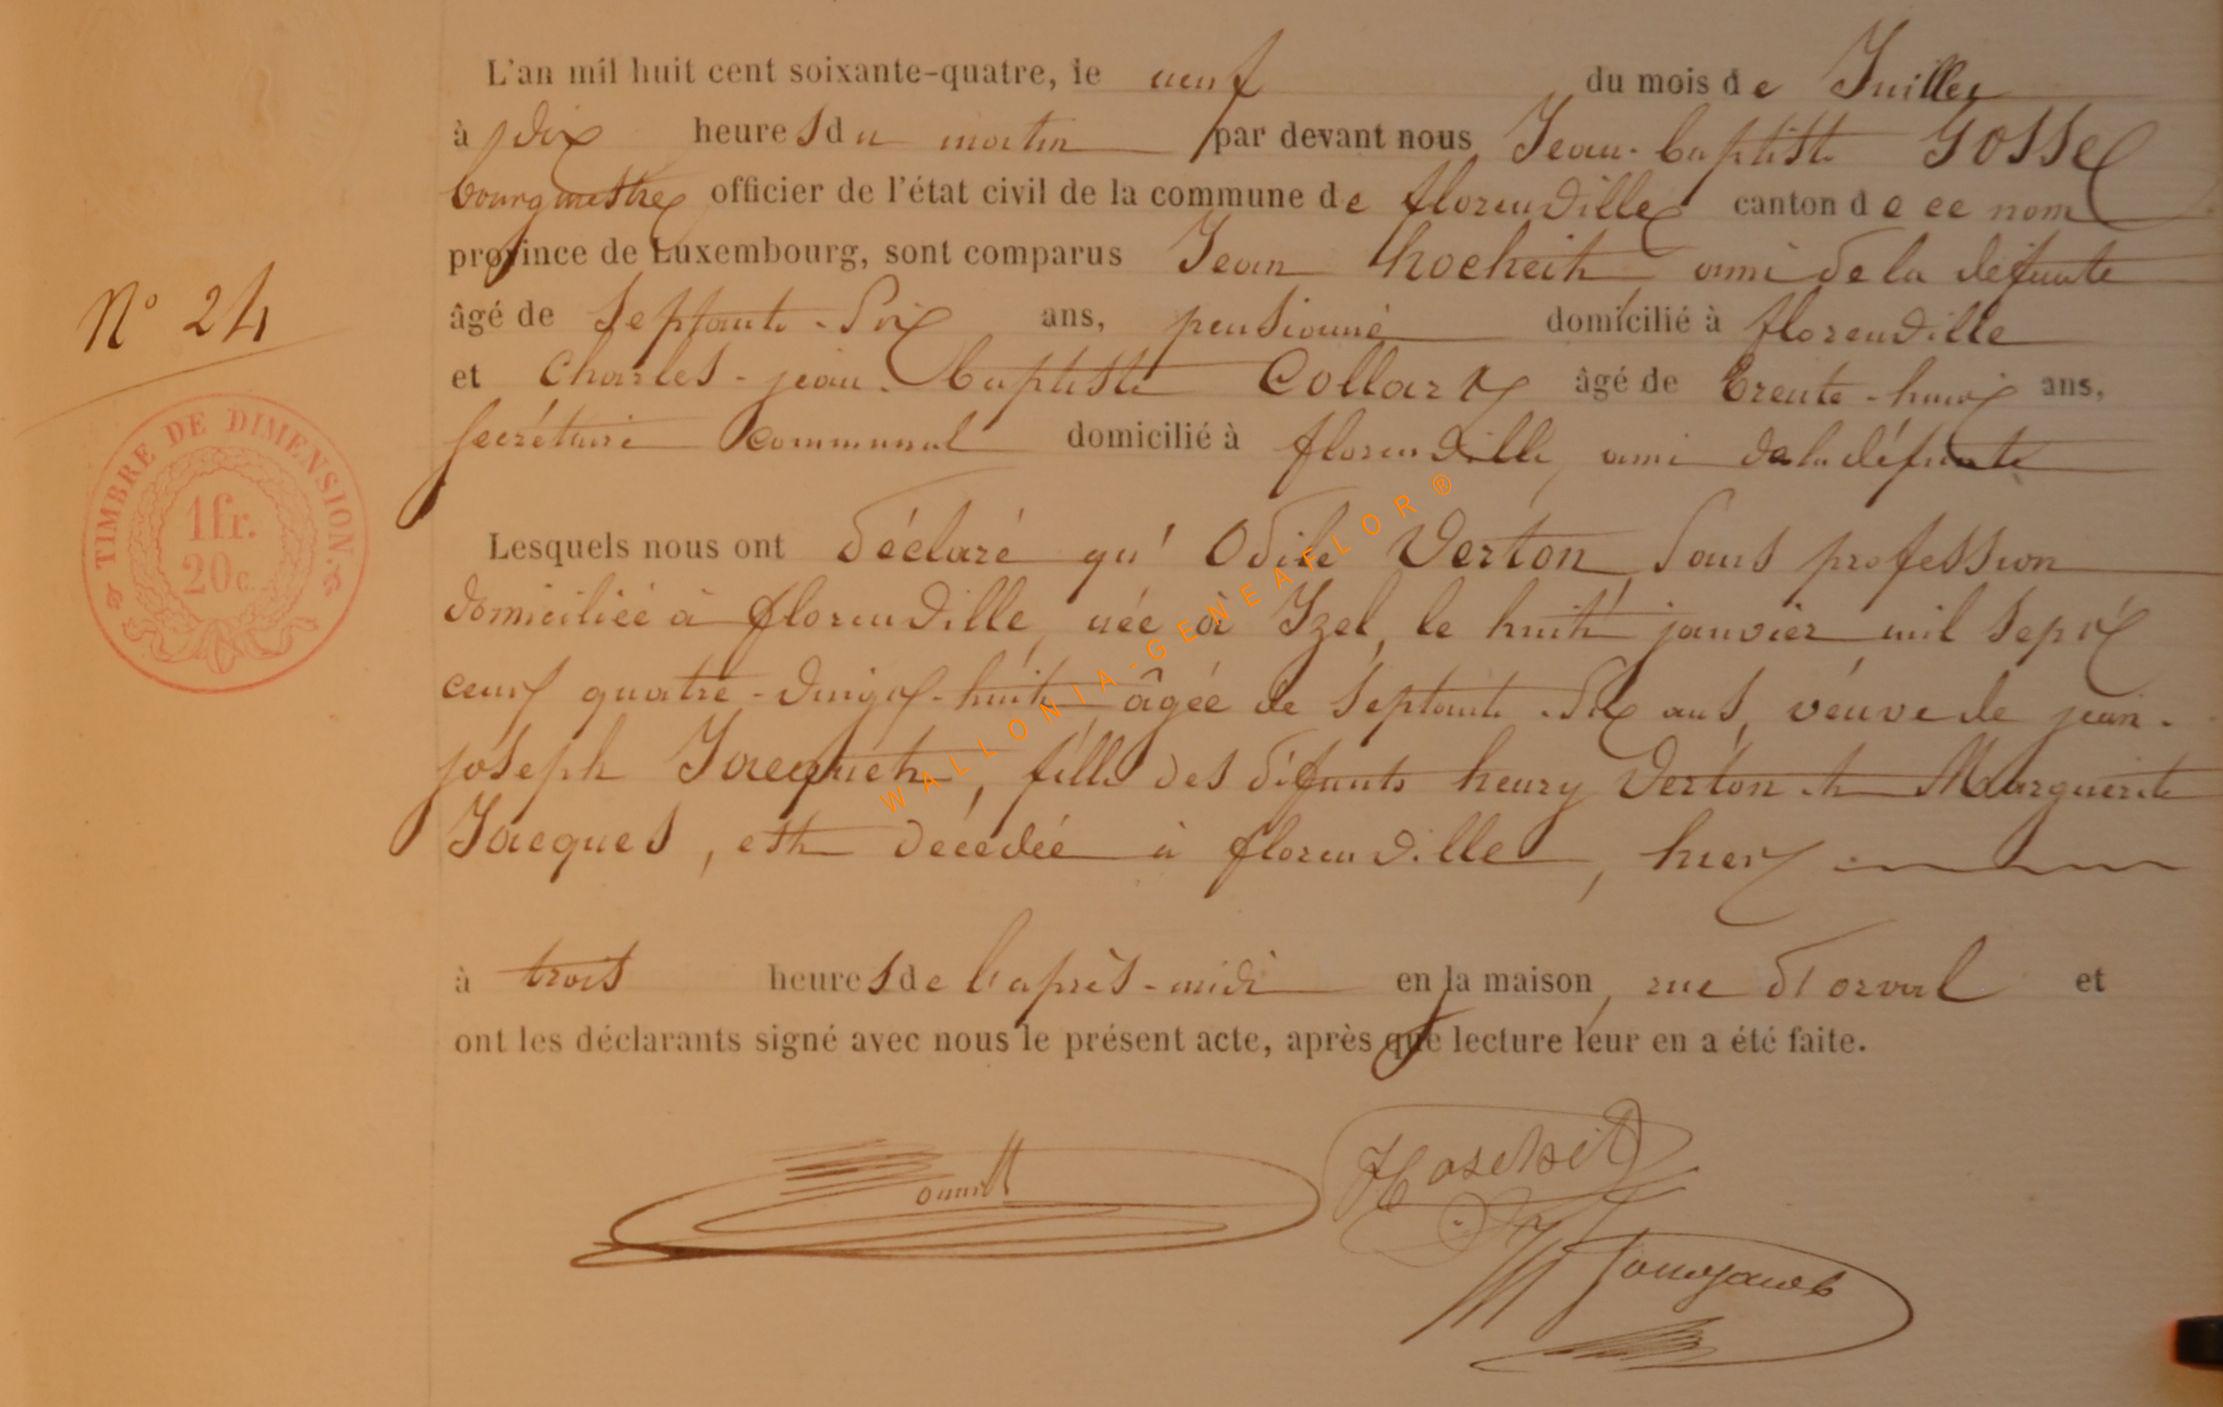 L'an mil huit cent soixante-quatre, le neuf du mois de Juillet
à dix heures du matin par devant nous Jean-baptiste Gosse
bourgmestre officier de l'état civil de la commune de florenville canton de ce nom
province de Luxembourg, sont comparus Jean hocheit ami de la défunte
N° 24
âgé de septante-six ans, pensionné domicilié à florenville
et Charles-jean-baptiste Collart âgé de trente-huit ans,
secrétaire communal domicilié à florenville, ami de la défunte
TIMBRE DE DIMENSION.
1 fr.
20 c.
Lesquels nous ont déclaré qu'Odile Verton sans profession
domiciliée à florenville, née à Izel, le huit janvier mil sept
cent quatre-vingt-huit âgée de septante-six ans, veuve de jean-
joseph Jacquet, fille des défunts henry Verton et Marguerite
Jacques, est décédée à florenville, hier
à trois heures de l'après-midi en la maison, rue d'orval et
ont les déclarants signé avec nous le présent acte, après que lecture leur en a été faite.
WALLONIA-GENEAFLOR®